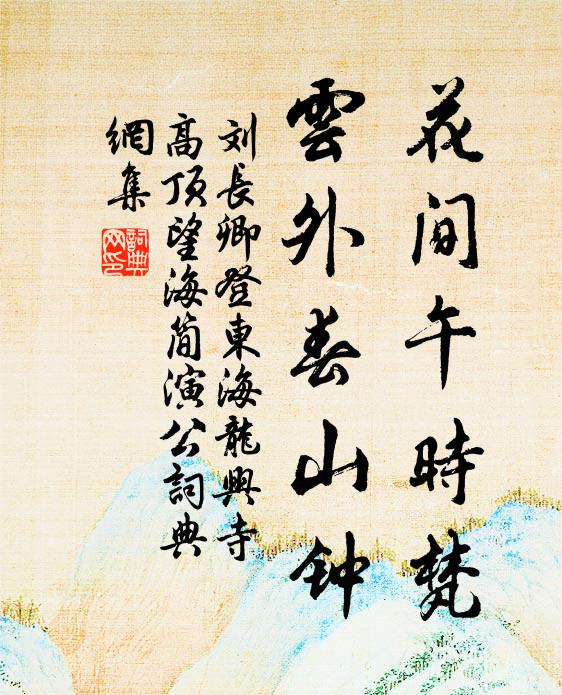 花间午時梵
雲外春山钟
刘長卿登東海龍興寺
高顶望海简演公詞典
網集
詞典
网印